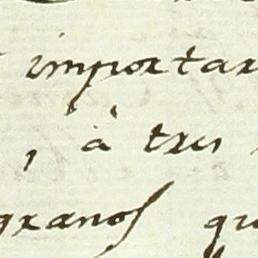 importar
, à tres
granos qu